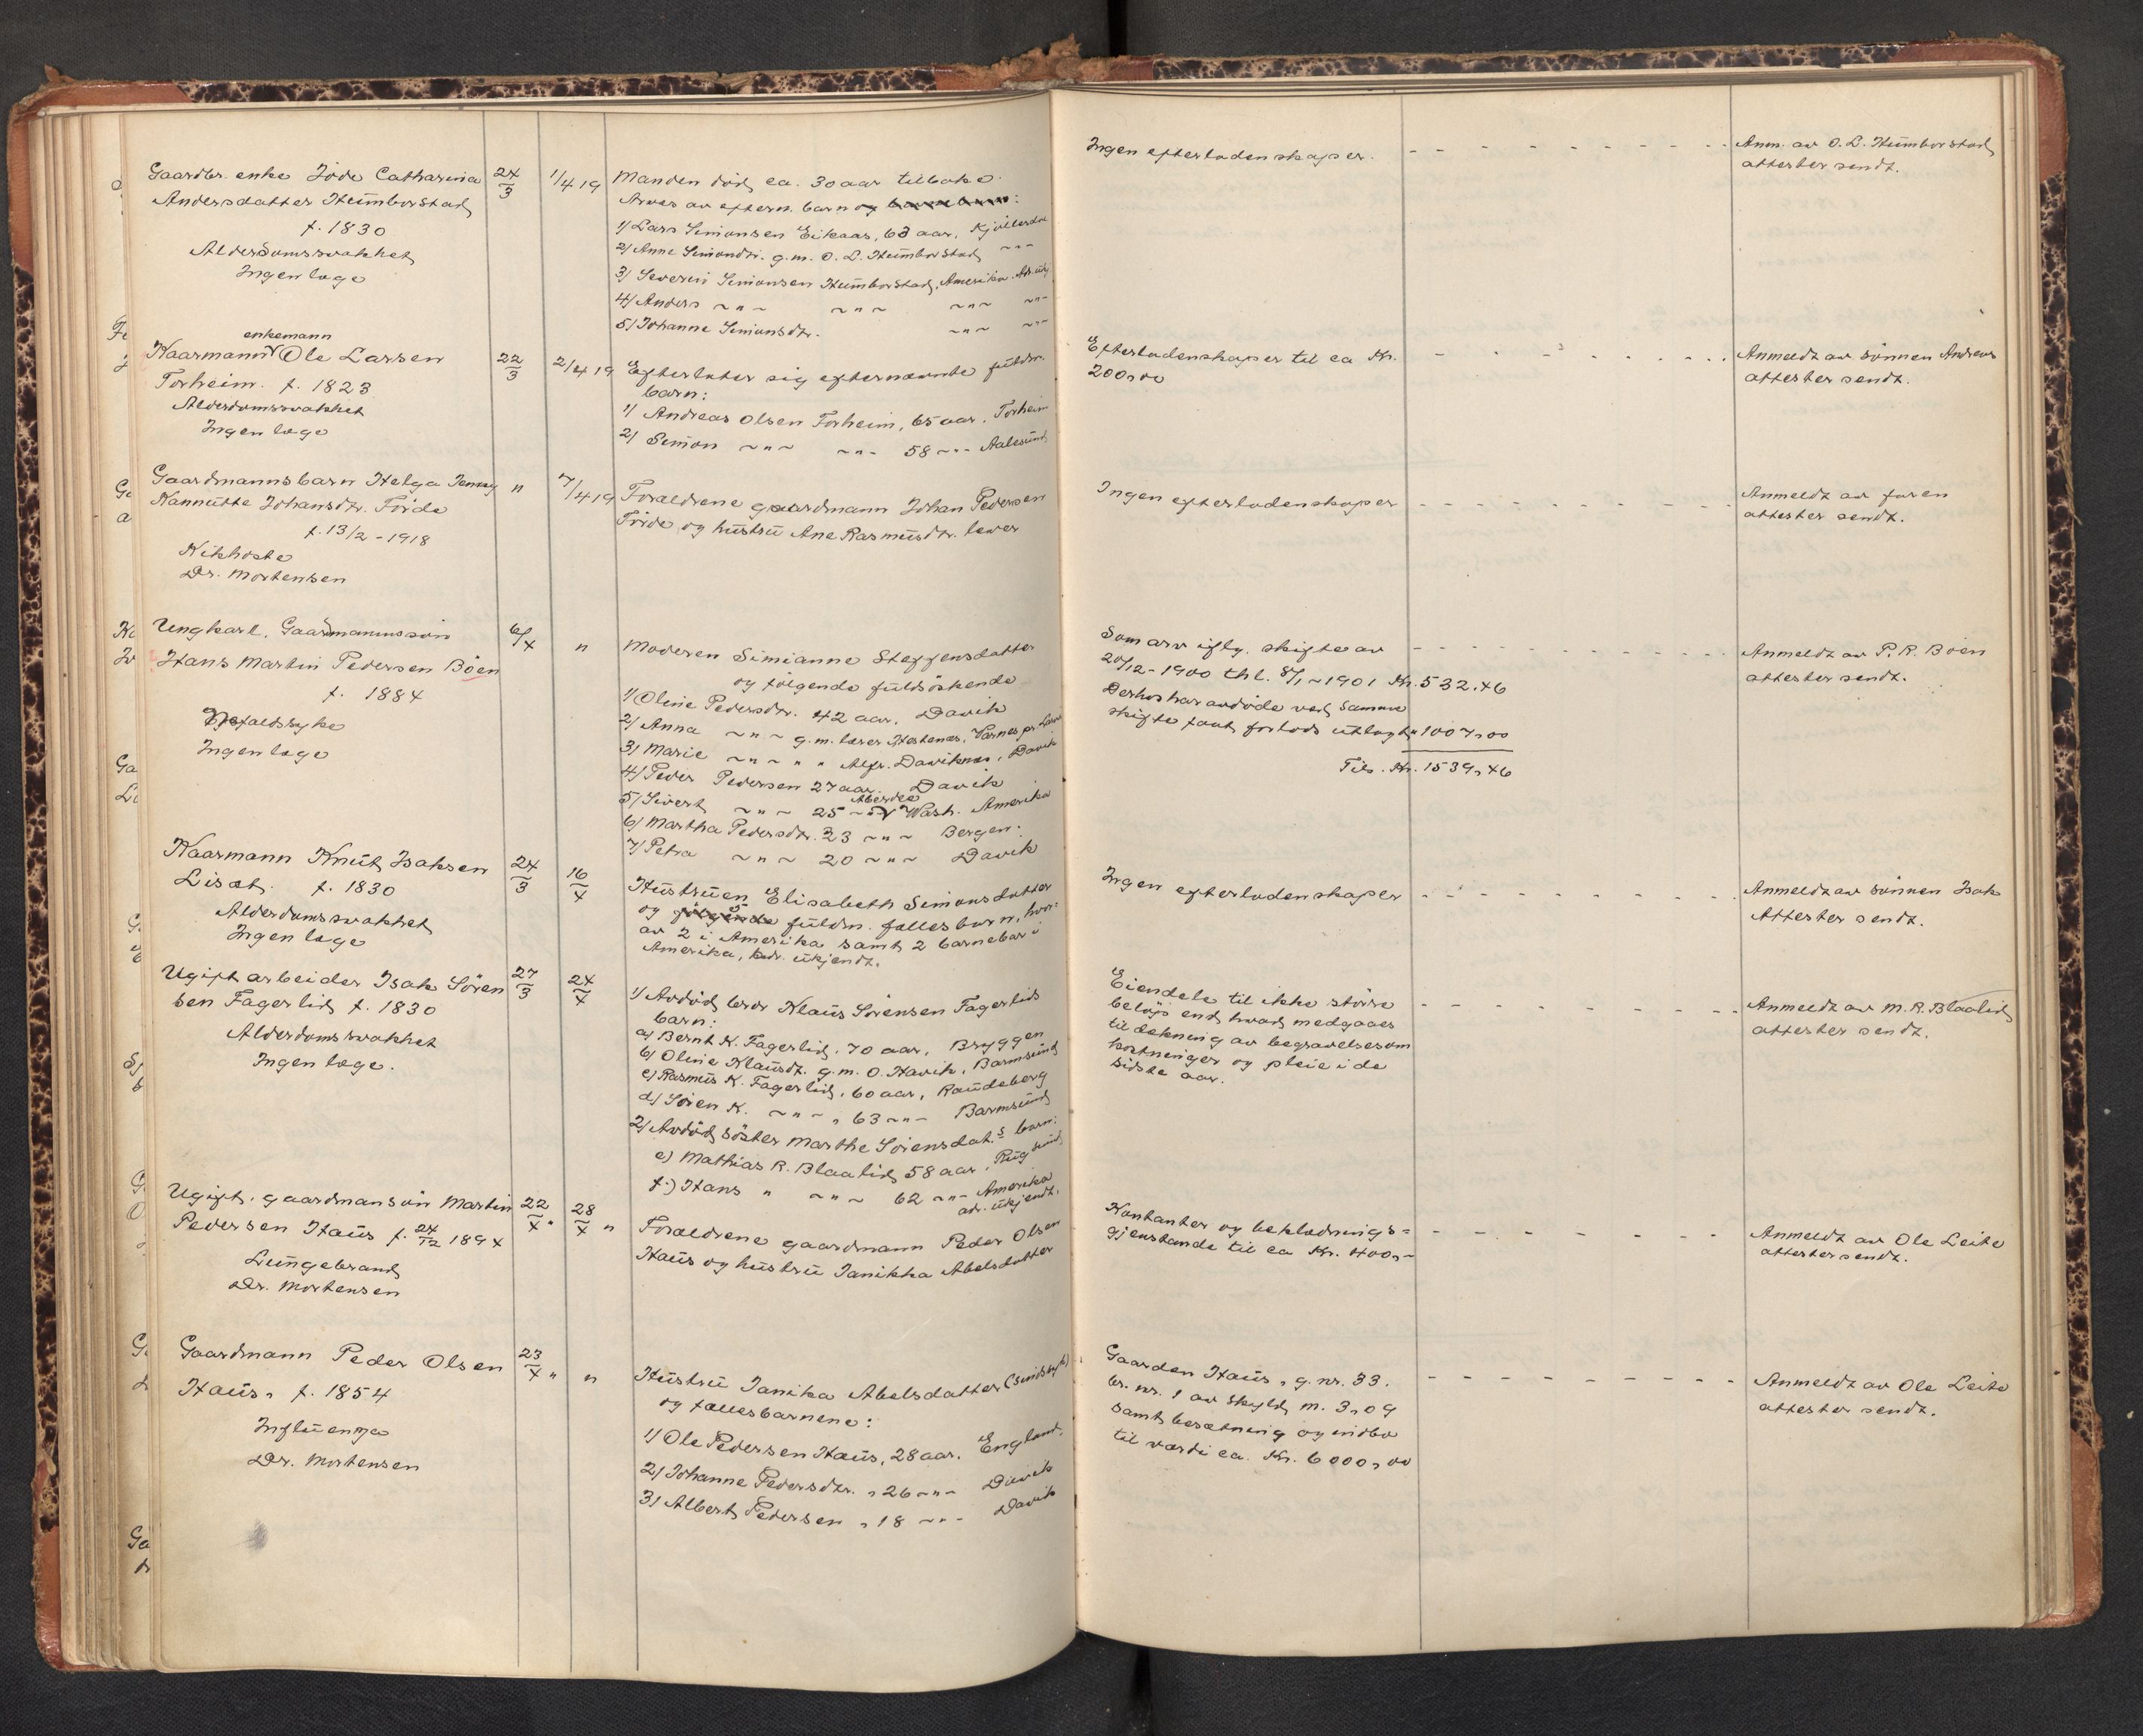 Gaardbr. enke Jöde Catharina 24/3 1/4 19 Manden död ca. 30 aar tilbake.
Andersdatter Humborstad Arves av eftern. barn og
f. 1830 1) Lars Simonsen Eikaas, 63 aar,
Alderdomssvakhet 2) Anne Simonsdtr. g.m. O. L. Humborstad ~"~
Ingen læge 3) Severin Simonsen Humborstad, Amerika.
4) Anders ~"~ ~"~ ~"~ ~"~
5) Johanne Simonsdtr. ~"~ ~"~
Ingen efterladenskaper. - - - - - - - - Anm. av O. L. Humborstad
attester sendt.
enkemann
Kaarmann Ole Larsen 22/3 2/4 19 Efterlater sig efternævnte fuldm.
Torheim. f. 1823 barn:
Alderdomssvakhet 1) Andreas Olsen Torheim, 65 aar, Torheim
Ingen læge 2) Simon ~"~ ~"~ 58 ~"~ Aalesund
Efterladenskaper til ca Kr. - - - - - - - Anmeldt av sönnen Andreas
200,00 attester sendt.
Gaardmannsbarn Helga Jenny " 7/4 19 Forældrene gaardmann Johan Pedersen
Johansdtr. Förde Förde og hustru Ane Rasmusdtr. lever
f. 13/2 - 1918
Kikhoste
Dr. Mortensen
Ingen efterladenskaper - - - - - - - - Anmeldt av faren
attester sendt.
Ungkarl, Gaardmannssön 6/4 " Moderen Simianne Steffensdatter
Hans Martin Pedersen Böen og følgende fuldsöskende
f. 1884 1) Oline Pedersdtr. 42 aar, Davik
2) Anna ~"~ g.m. lærer Hestenes,
Ingen læge 3) Marie ~"~ " " Alfr. Daviknes, Davik
4) Peder Pedersen 27 aar, Davik
5) Sivert ~"~ 25 ~"~ Aberdee Wash. Amerika
6) Martha Pedersdtr. 23 ~"~ Bergen.
7) Petra ~"~ 20 ~"~ Davik
Som arv iflg. skifte av - - - - - - - - Anmeldt av P. R. Böen
20/12 - 1900 thl. 8/1 - 1901 Kr. 532.46 attester sendt.
Derhos har avdöde ved samme
skifte faat forlods utlagt " 1007,00
Tils. Kr. 1539,46
Kaarmann Knut Isaksen 24/3 16/4 Hustruen Elisabeth Simonsdatter
Lisæt. f. 1830 og følgende 5 fuldm. fællesbarn, hvor-
Alderdomssvakhet av 2 i Amerika samt 2 barnebar i
Ingen læge Amerika, adr. ukjendt.
Ingen efterladenskaper - - - - - - - - Anmeldt av sönnen Isak
Attester sendt.
Ugift arbeider Isak Sören 27/3 24/4 1) Avdöd bror Klaus Sörensen Fagerlids
sen Fagerlid f. 1830 barn:
Alderdomssvakhet a) Bernt K. Fagerlid, 70 aar, Bryggen
Ingen læge. b) Oline Klausdt. g.m. O. Havik, Barmsund
c) Rasmus K. Fagerlid, 60 aar, Raudeberg
d) Sören K. ~"~ , 63 ~"~ Barmsund
2) Avdöd söster Marthe Sörensdat.s barn:
e) Mathias R. Blaalid 58 aar, Rugsund
f.) Hans " ~"~ 62 ~"~ Amerika
adr. ukjendt.
Eiendele til ikke större - - - - - - - - Anmeldt av M. R. Blaalid
beløp end hvad medgaaes attester sendt.
til dekning av begravelsesom
kostninger og pleie i de
sidste aar.
Ugift, gaardmansön Martin 22/4 " 28/4 " Forældrene gaardmann Peder Olsen
Pedersen Haus f. 24/12 1894 Haus og hustru Janikka Abelsdatter
Lungebrand
Dr. Mortensen
Kontanter og beklædnings= - - - - - - - Anmeldt av Ole Leite
gjenstande til ca Kr. 400,- attester sendt.
Gaardmann Peder Olsen 23/4 " " Hustru Janika Abelsdatter (sindssyk)
Haus, f. 1854 og fællesbarnene:
Influenza 1) Ole Pedersen Haus, 28 aar, England.
Dr. Mortensen 2) Johanne Pedersdtr. , 26 ~"~ Davik
3) Albert Pedersen , 18 ~"~ Davik
Gaarden Haus, g. nr. 33. - - - - - - - - Anmeldt av Ole Leite
br. nr. 1 av skyld m. 3,09 attester sendt.
samt besætning og indbo
til værdi ca. Kr. 6000,00